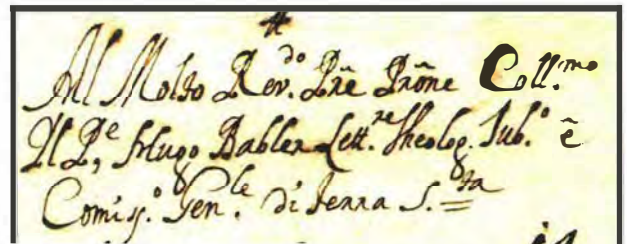 Al Molto Rev.do Prē Prōne Coll.mo
Il P.e frługo Babler Lett.re Theolog. Iub.o ē
Comiss.o Gen.le di Terra S.ta